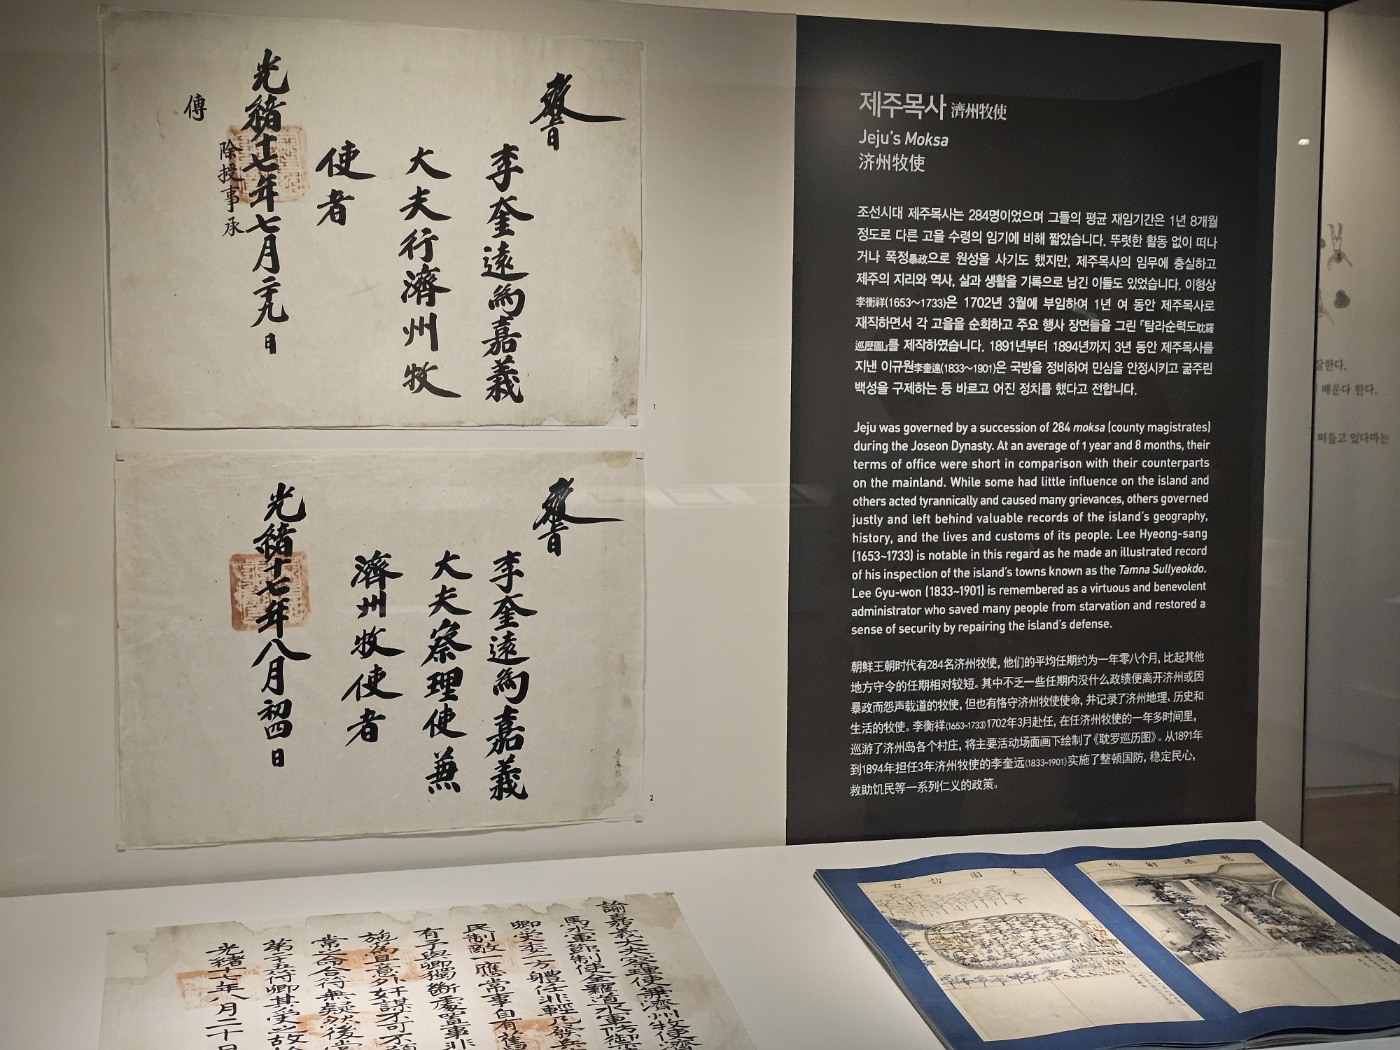 敎
李奎遠爲嘉義
大夫行濟州牧
使者
光緖十七年七月二十九日
除授事承
傳
1
敎旨
李奎遠爲嘉義
大夫察理使兼
濟州牧使者
光緖十七年八月初四日
2
제주목사 濟州牧使
Jeju's Moksa
济州牧使
조선시대 제주목사는 284명이었으며 그들의 평균 재임기간은 1년 8개월
정도로 다른 고을 수령의 임기에 비해 짧았습니다. 뚜렷한 활동 없이 떠나
거나 폭정暴政으로 원성을 사기도 했지만, 제주목사의 임무에 충실하고
제주의 지리와 역사, 삶과 생활을 기록으로 남긴 이들도 있었습니다. 이형상
李衡祥(1653~1733)은 1702년 3월에 부임하여 1년 여 동안 제주목사로
재직하면서 각 고을을 순회하고 주요 행사 장면들을 그린 『탐라순력도耽羅
巡歷圖』를 제작하였습니다. 1891년부터 1894년까지 3년 동안 제주목사를
지낸 이규원李奎遠(1833~1901)은 국방을 정비하여 민심을 안정시키고 굶주린
백성을 구제하는 등 바르고 어진 정치를 했다고 전합니다.
Jeju was governed by a succession of 284 moksa (county magistrates)
during the Joseon Dynasty. At an average of 1 year and 8 months, their
terms of office were short in comparison with their counterparts
on the mainland. While some had little influence on the island and
others acted tyrannically and caused many grievances, others governed
justly and left behind valuable records of the island's geography,
history, and the lives and customs of its people. Lee Hyeong-sang
(1653~1733) is notable in this regard as he made an illustrated record
of his inspection of the island's towns known as the Tamna Sullyeokdo.
Lee Gyu-won (1833~1901) is remembered as a virtuous and benevolent
administrator who saved many people from starvation and restored a
sense of security by repairing the island's defense.
朝鲜王朝时代有284名济州牧使, 他们的平均任期约为一年零八个月, 比起其他
地方守令的任期相对较短。其中不乏一些任期内没什么政绩便离开济州或因
暴政而怨声载道的牧使, 但也有恪守济州牧使使命, 并记录了济州地理、历史和
生活的牧使。李衡祥(1653~1733)1702年3月赴任, 在任济州牧使的一年多时间里,
巡游了济州岛各个村庄, 将主要活动场面画下绘制了《耽罗巡历图》。从1891年
到1894年担任3年济州牧使的李奎远(1833~1901)实施了整顿国防, 稳定民心,
救助饥民等一系列仁义的政策。
잘한다.
배운다 한다.
떠들고 있다마는
諭嘉義大夫察理使兼濟州牧使
卿受
民制敵一應常事自有舊
有予與卿獨斷處置事非
施爲且意外奸謀不可不
常之命合符無疑然後當
第十五符卿其受之故
光緖十七年八月二十日